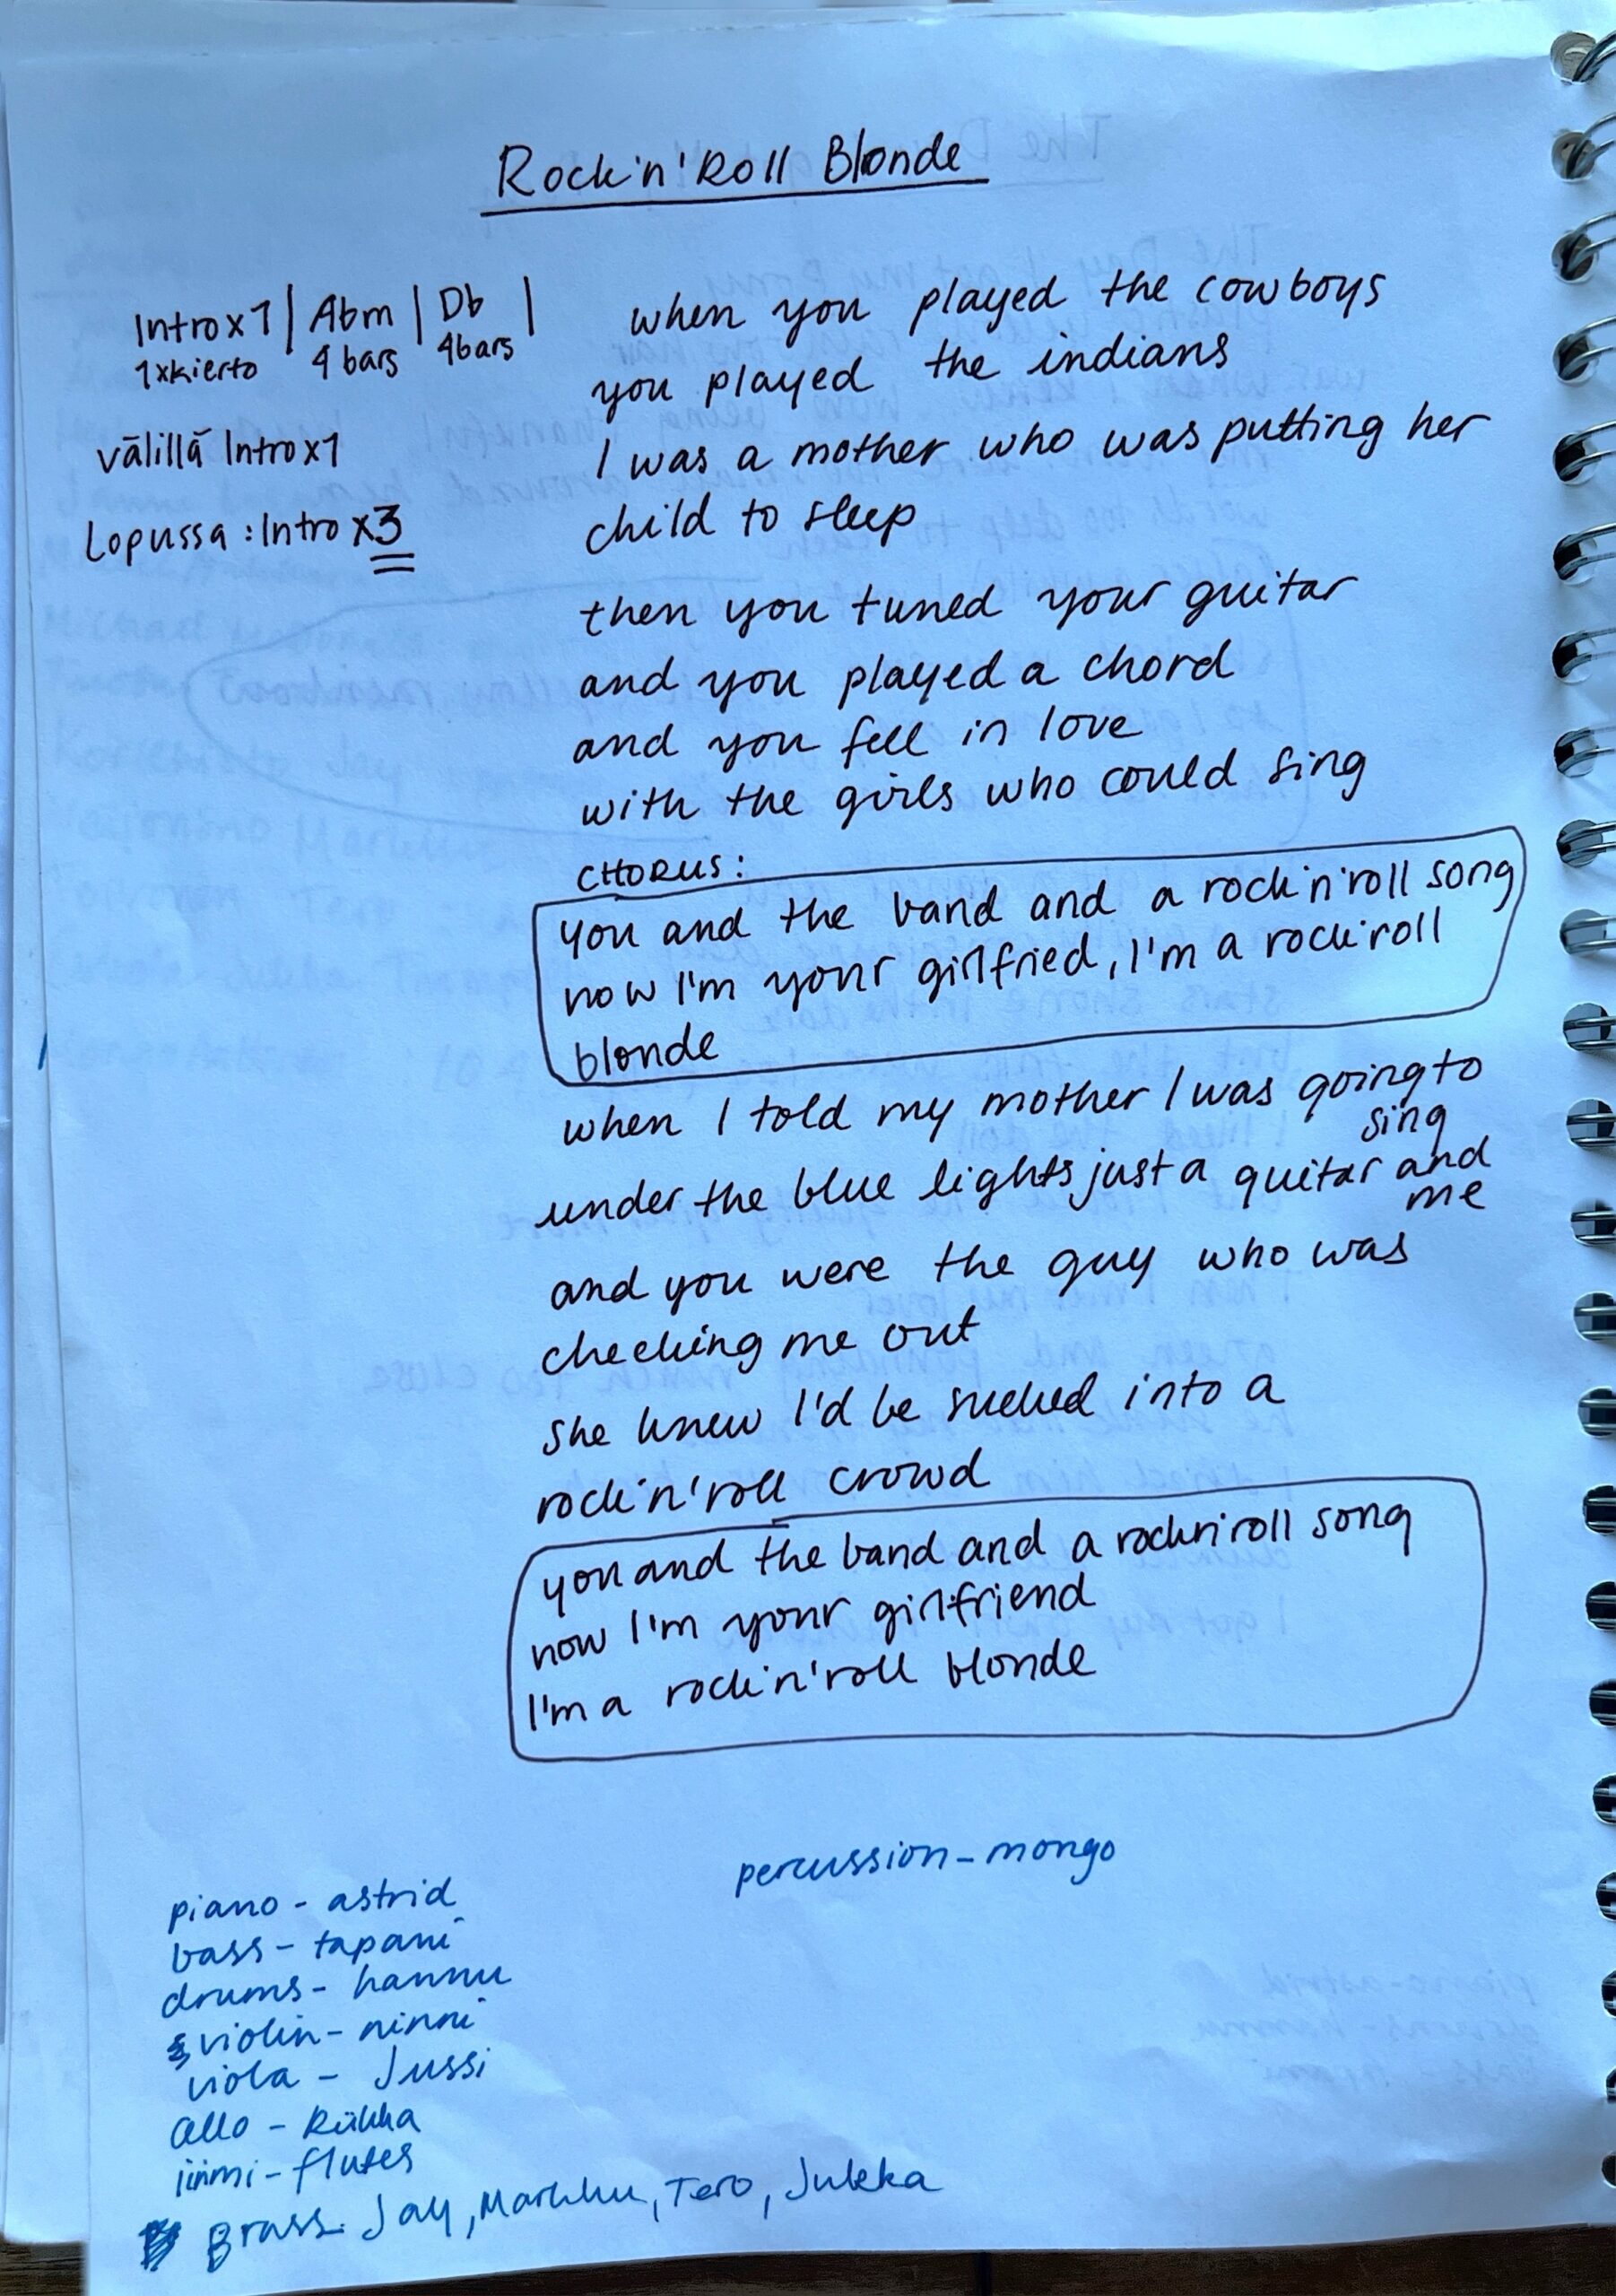 Rock'n'Roll Blonde
Intro x1 | Abm | Db |
1xkierto 4 bars 4bars
välillä Intro x1
Lopussa : Intro x3
when you played the cowboys
you played the indians
I was a mother who was putting her
child to sleep
then you tuned your guitar
and you played a chord
and you fell in love
with the girls who could sing
CHORUS:
you and the band and a rock'n'roll song
now I'm your girlfried, I'm a rock'roll
blonde
when I told my mother I was going to
sing
under the blue lights just a guitar and
me
and you were the guy who was
checking me out
she knew I'd be sucked into a
rock'n'roll crowd
you and the band and a rock'n'roll song
now I'm your girlfriend
I'm a rock'n'roll blonde
percussion - mongo
piano - astrid
bass - tapani
drums - hannu
violin - ninni
viola - Jussi
cello - Riikka
- flutes
Brass: Jay, Markku, Tero, Jukka